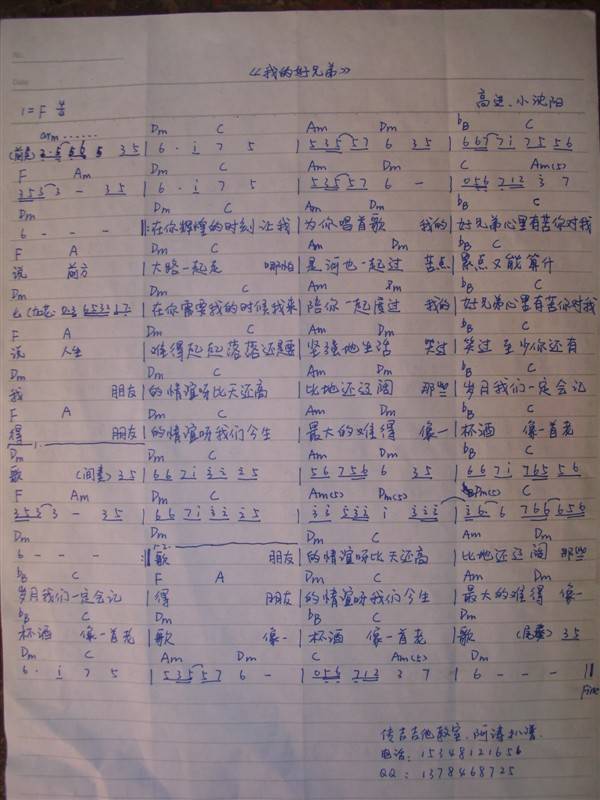 《我的好兄弟》
1=F
高进、小沈阳
am ......
Dm C Am Dm bB C
(前奏) 35 | 6 · i 7 5 | 535 57 6 35 | 667 7i 7556
F Am Dm C Am Dm C Am(5)
353 3 - 35 | 6 · i 7 5 | 535 57 6 - | 056 712 3 7
Dm Dm C Am Dm bB C
6 - - - ‖: 在你辉煌的时刻 让我 | 为你唱首歌 我的 | 好兄弟心里有苦你对我
F A Dm C Am Dm bB C
说 前方 | 大路一起走 哪怕 | 是河也一起过 苦点 | 累点又能算什
Dm Dm C Am bB C
么 | 在你需要我的时候我来 | 陪你一起度过 我的 | 好兄弟心里有苦你对我
F A Dm C Am Dm bB C
说 人生 | 难得起起落落还是要 | 坚强地生活 哭过 | 笑过 至少你还有
Dm Dm C Am Dm bB C
我 朋友 | 的情谊呀比天还高 | 比地还辽阔 那些 | 岁月我们一定会记
F A Dm C Am Dm bB C
得 朋友 | 的情谊呀我们今生 | 最大的难得 像一 | 杯酒 像一首老
Dm 1. Dm C Am Dm bB C
歌 (间奏) 35 | 667i ii i5 | 56 756 6 35 | 667i 765 56
F Am Dm C Am(5) Dm(5) C
353 3 - 35 | 667i ii i5 | ii 5ii i iii | i6 6 766 656
Dm Dm Dm C Am Dm
6 - - - ‖ 1-2. 歌 朋友 | 的情谊呀比天还高 | 比地还辽阔 那些
bB C F A Dm C Am Dm
岁月我们一定会记 | 得 朋友 | 的情谊呀我们今生 | 最大的难得 像一
bB C Dm bB C Dm
杯酒 像一首老 | 歌 像一 | 杯酒 像一首老 | 歌 (尾奏) 35
Dm C Am Dm C Am(5) Dm
6 · i 7 5 | 535 57 6 - | 056 713 3 7 | 6 - - - ‖
Fine
吉他教室.阿涛扒谱.
电话: 15348121656
QQ: 1378468725